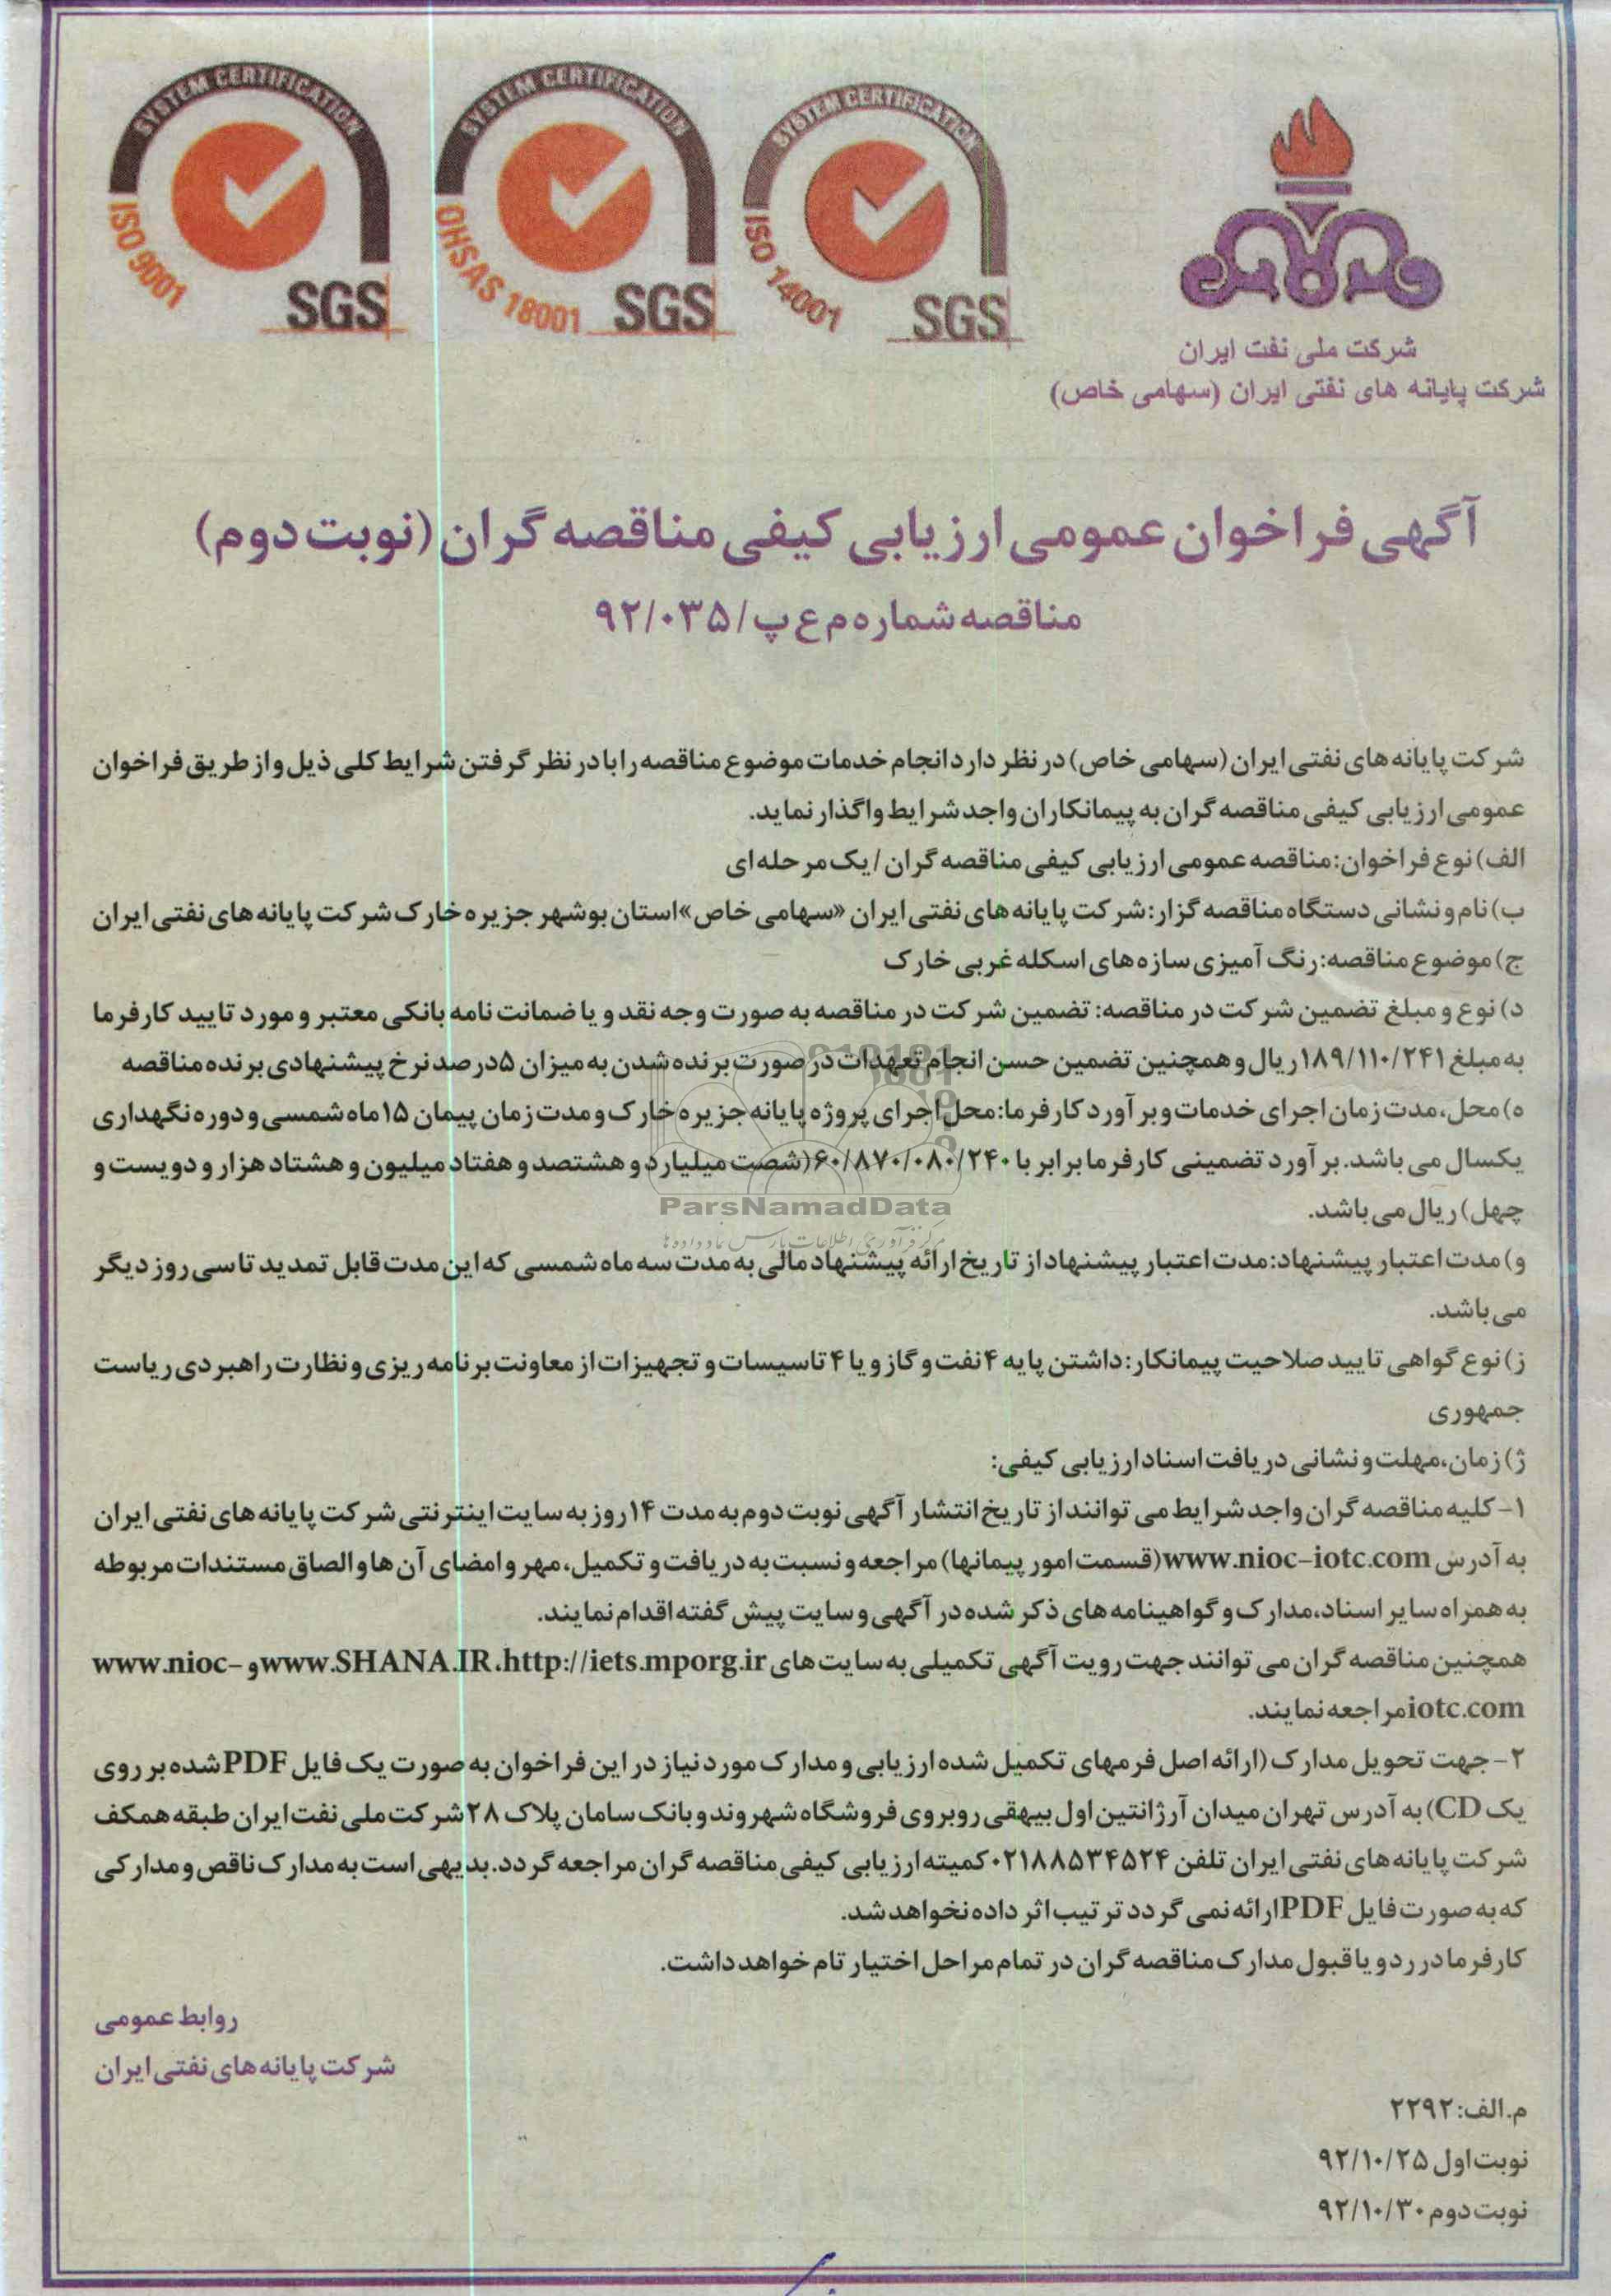 SYSTEM CERTIFICATION
ISO 9001
SGS
SYSTEM CERTIFICATION
OHSAS 18001
SGS
SYSTEM CERTIFICATION
ISO 14001
SGS
شرکت ملی نفت ایران
شرکت پایانه های نفتی ایران (سهامی خاص)
آگهی فراخوان عمومی ارزیابی کیفی مناقصه گران (نوبت دوم)
مناقصه شماره م ع پ/۹۲/۰۳۵
شرکت پایانه های نفتی ایران (سهامی خاص) در نظر دارد انجام خدمات موضوع مناقصه را با در نظر گرفتن شرایط کلی ذیل و از طریق فراخوان
عمومی ارزیابی کیفی مناقصه گران به پیمانکاران واجد شرایط واگذار نماید.
الف) نوع فراخوان: مناقصه عمومی ارزیابی کیفی مناقصه گران / یک مرحله ای
ب) نام و نشانی دستگاه مناقصه گزار: شرکت پایانه های نفتی ایران «سهامی خاص» استان بوشهر جزیره خارک شرکت پایانه های نفتی ایران
ج) موضوع مناقصه: رنگ آمیزی سازه های اسکله غربی خارک
د) نوع و مبلغ تضمین شرکت در مناقصه: تضمین شرکت در مناقصه به صورت وجه نقد و یا ضمانت نامه بانکی معتبر و مورد تایید کارفرما
به مبلغ ۱۸۹/۱۱۰/۲۴۱ ریال و همچنین تضمین حسن انجام تعهدات در صورت برنده شدن به میزان ۵ درصد نرخ پیشنهادی برنده مناقصه
ه) محل، مدت زمان اجرای خدمات و برآورد کارفرما: محل اجرای پروژه پایانه جزیره خارک و مدت زمان پیمان ۱۵ ماه شمسی و دوره نگهداری
یکسال می باشد. برآورد تضمینی کارفرما برابر با ۶۰/۸۷۰/۰۸۰/۲۴۰ (شصت میلیارد و هشتصد و هفتاد میلیون و هشتاد هزار و دویست و
چهل) ریال می باشد.
ParsNamadData
و) مدت اعتبار پیشنهاد: مدت اعتبار پیشنهاد از تاریخ ارائه پیشنهاد مالی به مدت سه ماه شمسی که این مدت قابل تمدید تا سی روز دیگر
می باشد.
ز) نوع گواهی تایید صلاحیت پیمانکار: داشتن پایه ۴ نفت و گاز و یا ۴ تاسیسات و تجهیزات از معاونت برنامه ریزی و نظارت راهبردی ریاست
جمهوری
ژ) زمان، مهلت و نشانی دریافت اسناد ارزیابی کیفی:
۱- کلیه مناقصه گران واجد شرایط می توانند از تاریخ انتشار آگهی نوبت دوم به مدت ۱۴ روز به سایت اینترنتی شرکت پایانه های نفتی ایران
به آدرس www.nioc-iotc.com (قسمت امور پیمانها) مراجعه و نسبت به دریافت و تکمیل، مهر و امضای آن ها و الصاق مستندات مربوطه
به همراه سایر اسناد، مدارک و گواهینامه های ذکر شده در آگهی و سایت پیش گفته اقدام نمایند.
همچنین مناقصه گران می توانند جهت رویت آگهی تکمیلی به سایت های www.SHANA.IR، http://iets.mporg.ir و www.nioc-
iotc.com مراجعه نمایند.
۲- جهت تحویل مدارک (ارائه اصل فرمهای تکمیل شده ارزیابی و مدارک مورد نیاز در این فراخوان به صورت یک فایل PDF شده بر روی
یک CD) به آدرس تهران میدان آرژانتین اول بیهقی روبروی فروشگاه شهروند و بانک سامان پلاک ۲۸ شرکت ملی نفت ایران طبقه همکف
شرکت پایانه های نفتی ایران تلفن ۰۲۱۸۸۵۳۴۵۲۴ کمیته ارزیابی کیفی مناقصه گران مراجعه گردد. بدیهی است به مدارک ناقص و مدارکی
که به صورت فایل PDF ارائه نمی گردد ترتیب اثر داده نخواهد شد.
کارفرما در رد و یا قبول مدارک مناقصه گران در تمام مراحل اختیار تام خواهد داشت.
روابط عمومی
شرکت پایانه های نفتی ایران
م.الف: ۲۲۹۲
نوبت اول ۹۲/۱۰/۲۵
نوبت دوم ۹۲/۱۰/۳۰